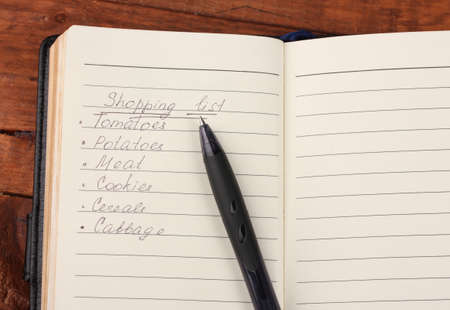 Shopping list
• Tomatoes
• Potatoes
• Meat
• Cookies
• Cereals
• Cabbage